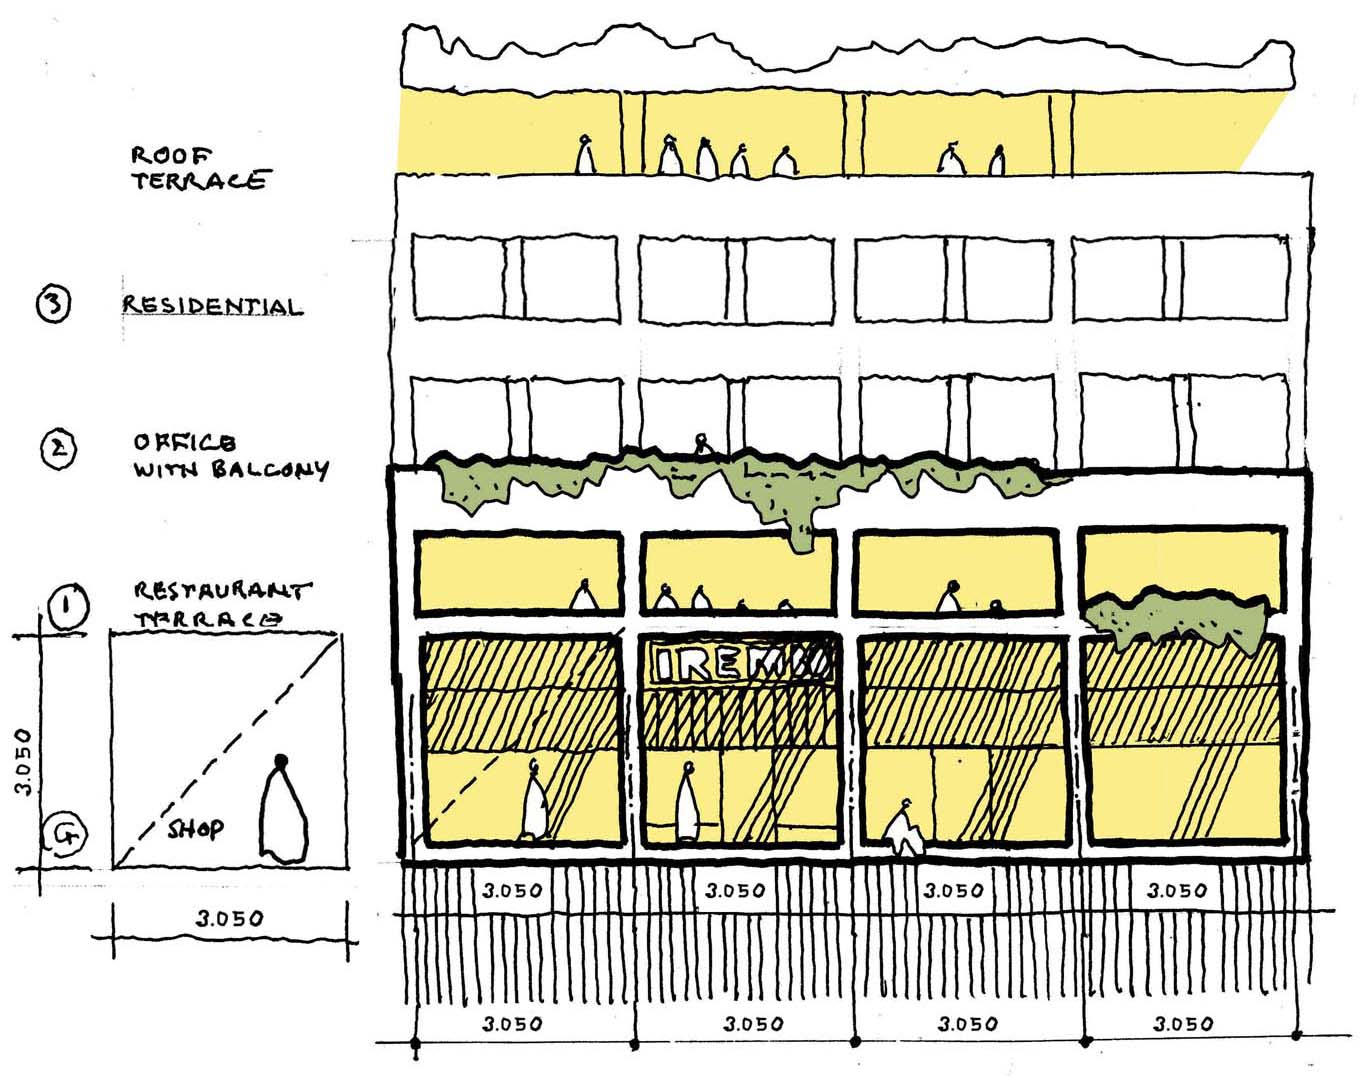 ROOF
TERRACE
3 RESIDENTIAL
2 OFFICE
WITH BALCONY
1 RESTAURANT
TERRACE
3.050
G
SHOP
3.050
IREM
3.050 3.050 3.050 3.050
3.050 3.050 3.050 3.050